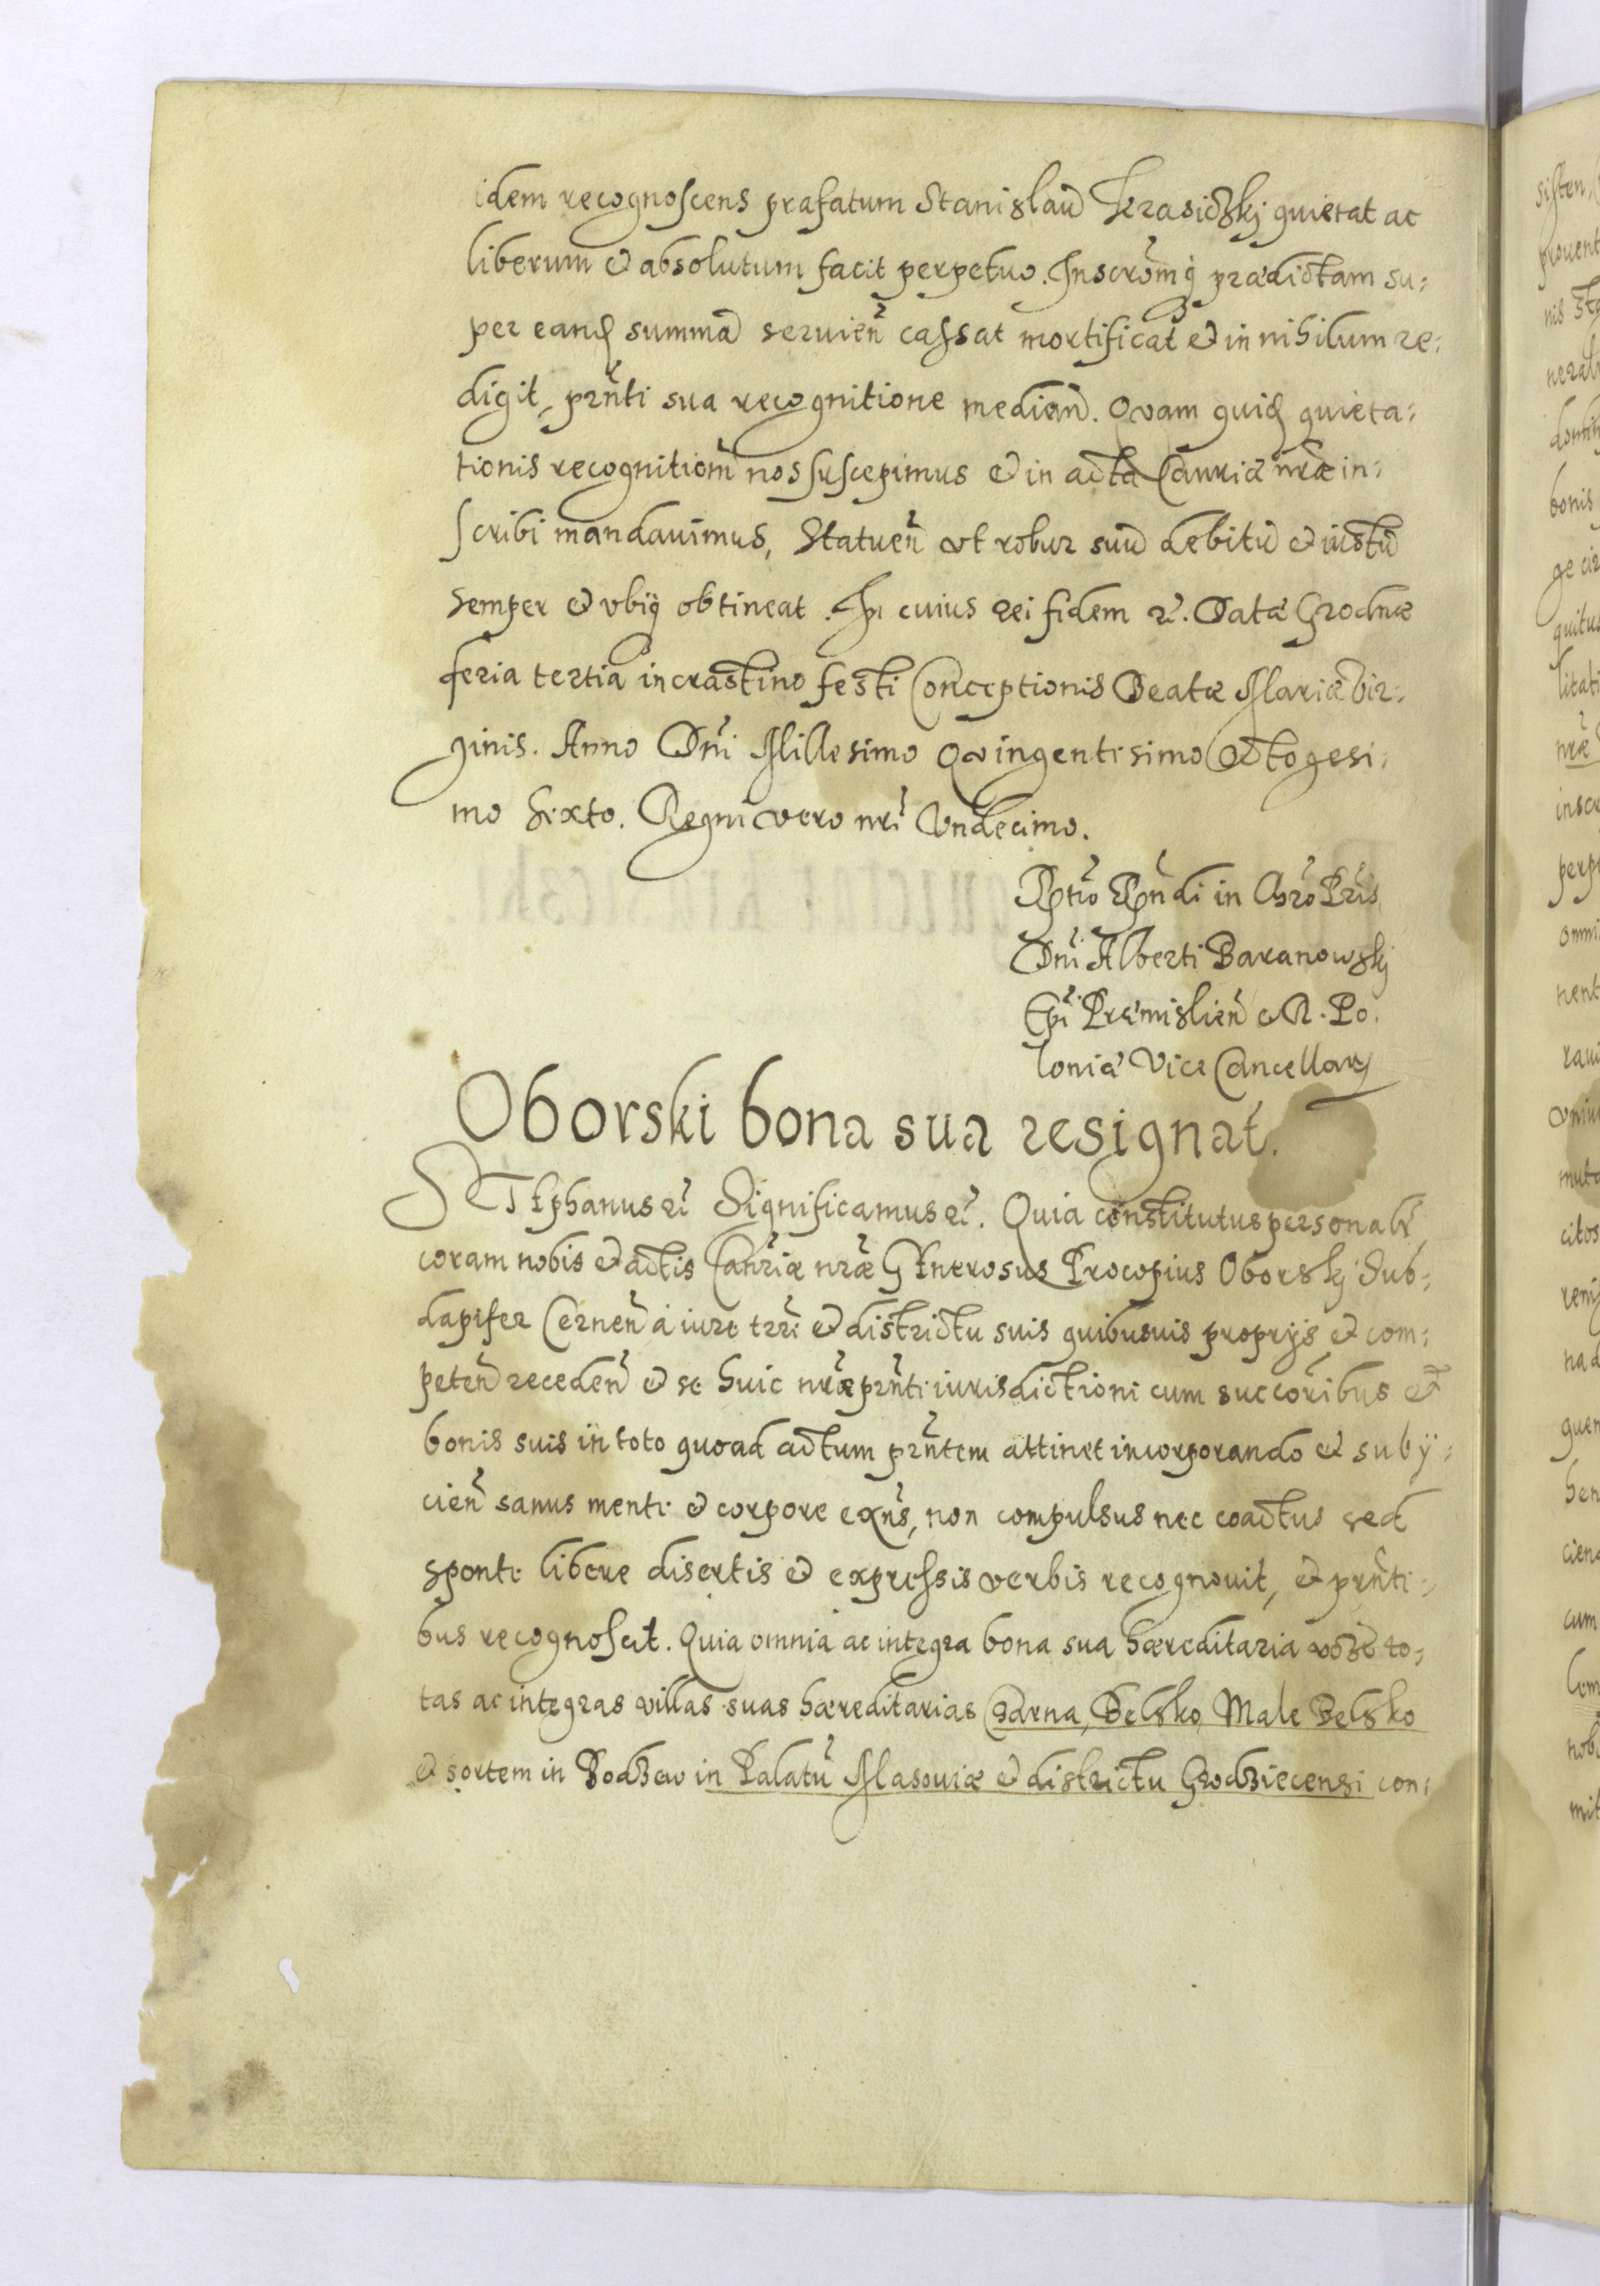 idem recognoscens præfatum Stanislaū Krasiczkj quietat ac
liberum et absolutum facit perpetuo. Inscrōmq̨ prædictam su:
per eandꝫ summā seruien̄ cassat mortificat et in nihilum re:
digit, prn̄ti sua recognitione median̄. Quam quidꝫ quieta:
tionis recognitiom̄ nos suscepimus et in acta Canriæ nr̄æ in:
scribi mandauimus, Statuen̄ vt robur suū debitū et iustū
semper et vbiq̨ obtineat. In cuius rei fidem etc̄. Datæ Grodnæ
feria tertia in crastino festi Conceptionis Beatæ Mariæ Vir:
ginis. Anno Dn̄i Millesimo Quingentesimo Octogesi:
mo Sexto. Regni vero nr̄i Vndecimo.
Rtio Rn̄di in Chr̄o Pr̄is
Dn̄i Alberti Baranowskj
Ep̄i Præmislien̄ et R. Po.
loniæ Vice Cancellarij
Oborski bona sua resignat.
STEphanus etc̄ Significamus etc̄. Quia constitutus personalr̄
coram nobis et actis Canr̄iæ nr̄æ GEnerosus Procopius Oborskj Sub:
dapifer Cernen̄ à iure trr̄i et districtu suis quibusuis proprijs et com:
peten̄ receden̄ et se huic nr̄æ prn̄ti iurisdictioni cum succōribus et
bonis suis in toto quoad actum prn̄tem attinet incorporando et subij:
cien̄ sanus mente et corpore exn̄s, non compulsus nec coactus sed
sponte libere disertis et expressis verbis recognouit, et prn̄ti:
bus recognoscit. Quia omnia ac integra bona sua hæreditaria to:
tas ac integras villas suas hæreditarias Czarna, Belsko, Male Belsko
et sortem in in Palatū Masouiæ et districtu Grodziecensi con: